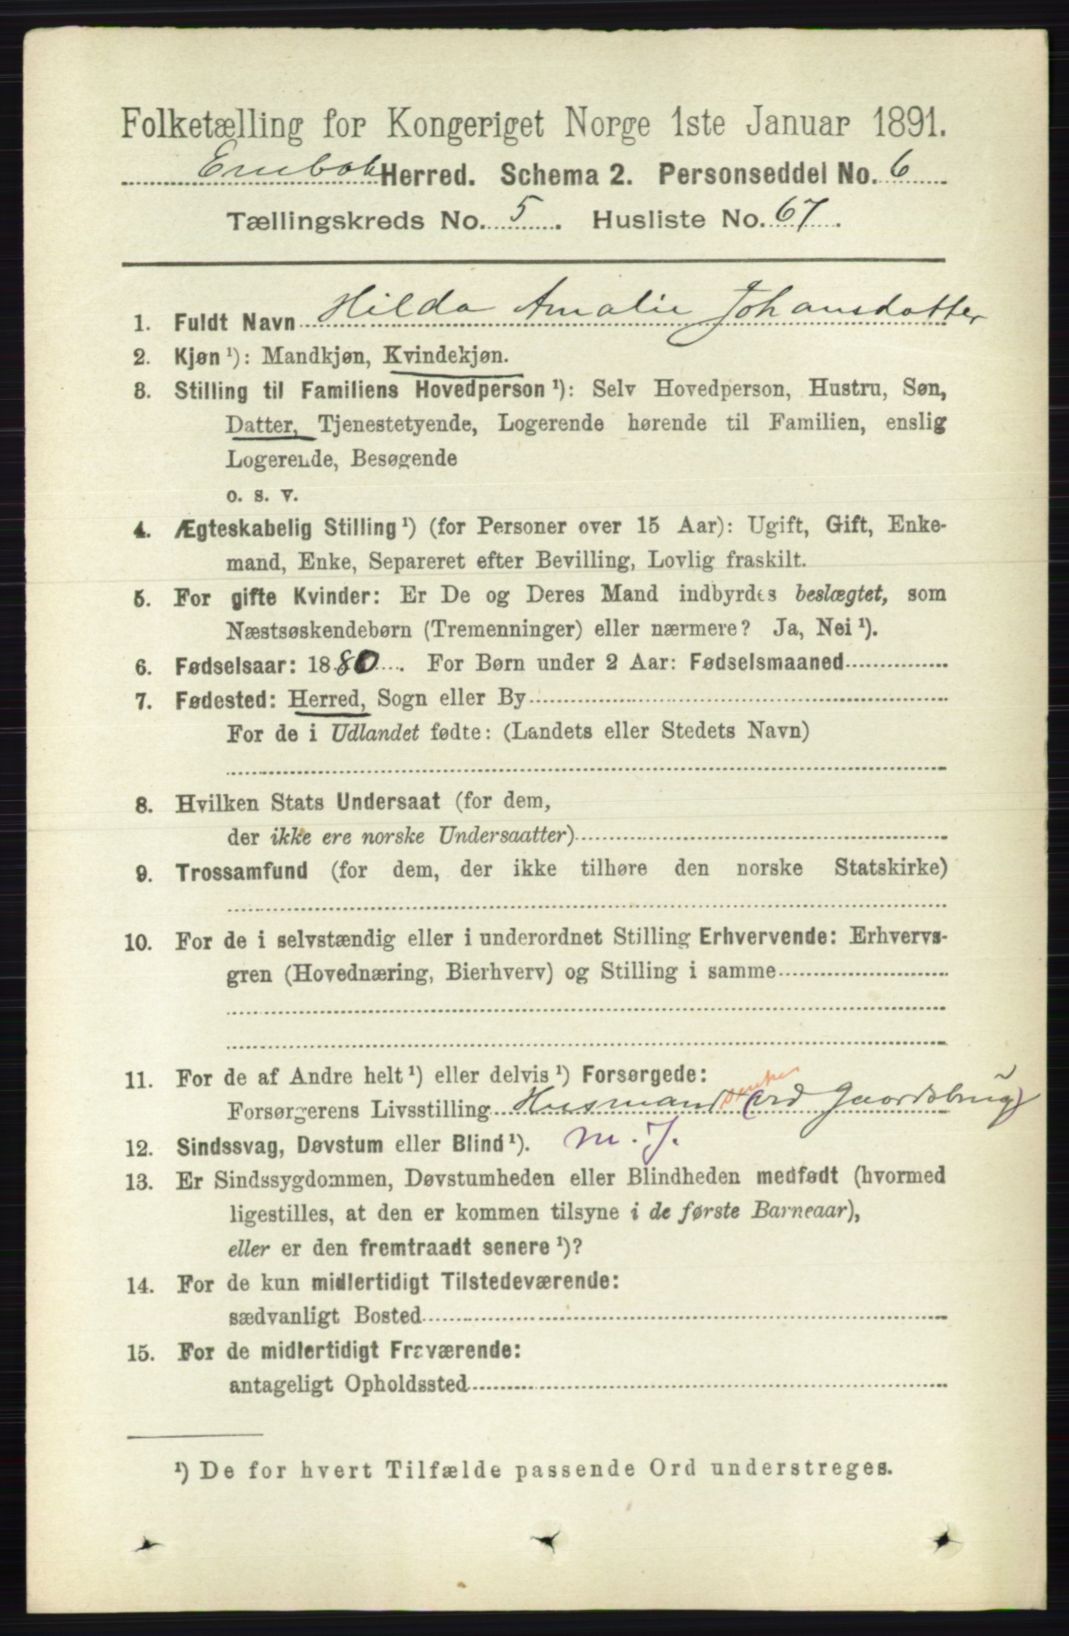 Folketælling for Kongeriget Norge 1ste Januar 1891.
Enebak Herred. Schema 2. Personseddel No. 6
Tællingskreds No. 5. Husliste No. 67.
1. Fuldt Navn Hilda Amalie Johansdatter
2. Kjøn ¹): Mandkjøn, Kvindekjøn.
3. Stilling til Familiens Hovedperson ¹): Selv Hovedperson, Hustru, Søn,
Datter, Tjenestetyende, Logerende hørende til Familien, enslig
Logerende, Besøgende
o. s. v.
4. Ægteskabelig Stilling ¹) (for Personer over 15 Aar): Ugift, Gift, Enke-
mand, Enke, Separeret efter Bevilling, Lovlig fraskilt.
5. For gifte Kvinder: Er De og Deres Mand indbyrdes beslægtet, som
Næstsøskendebørn (Tremenninger) eller nærmere? Ja, Nei ¹).
6. Fødselsaar: 1880. For Børn under 2 Aar: Fødselsmaaned
7. Fødested: Herred, Sogn eller By
For de i Udlandet fødte: (Landets eller Stedets Navn)
8. Hvilken Stats Undersaat (for dem,
der ikke ere norske Undersaatter)
9. Trossamfund (for dem, der ikke tilhøre den norske Statskirke)
10. For de i selvstændig eller i underordnet Stilling Erhvervende: Erhvervs-
gren (Hovednæring, Bierhverv) og Stilling i samme
11. For de af Andre helt ¹) eller delvis ¹) Forsørgede:
Forsørgerens Livsstilling Husmand Gaardsbrug
12. Sindssvag, Døvstum eller Blind ¹). m. J.
13. Er Sindssygdommen, Døvstumheden eller Blindheden medfødt (hvormed
ligestilles, at den er kommen tilsyne i de første Barneaar),
eller er den fremtraadt senere ¹)?
14. For de kun midlertidigt Tilstedeværende:
sædvanligt Bosted
15. For de midlertidigt Fraværende:
antageligt Opholdssted
¹) De for hvert Tilfælde passende Ord understreges.